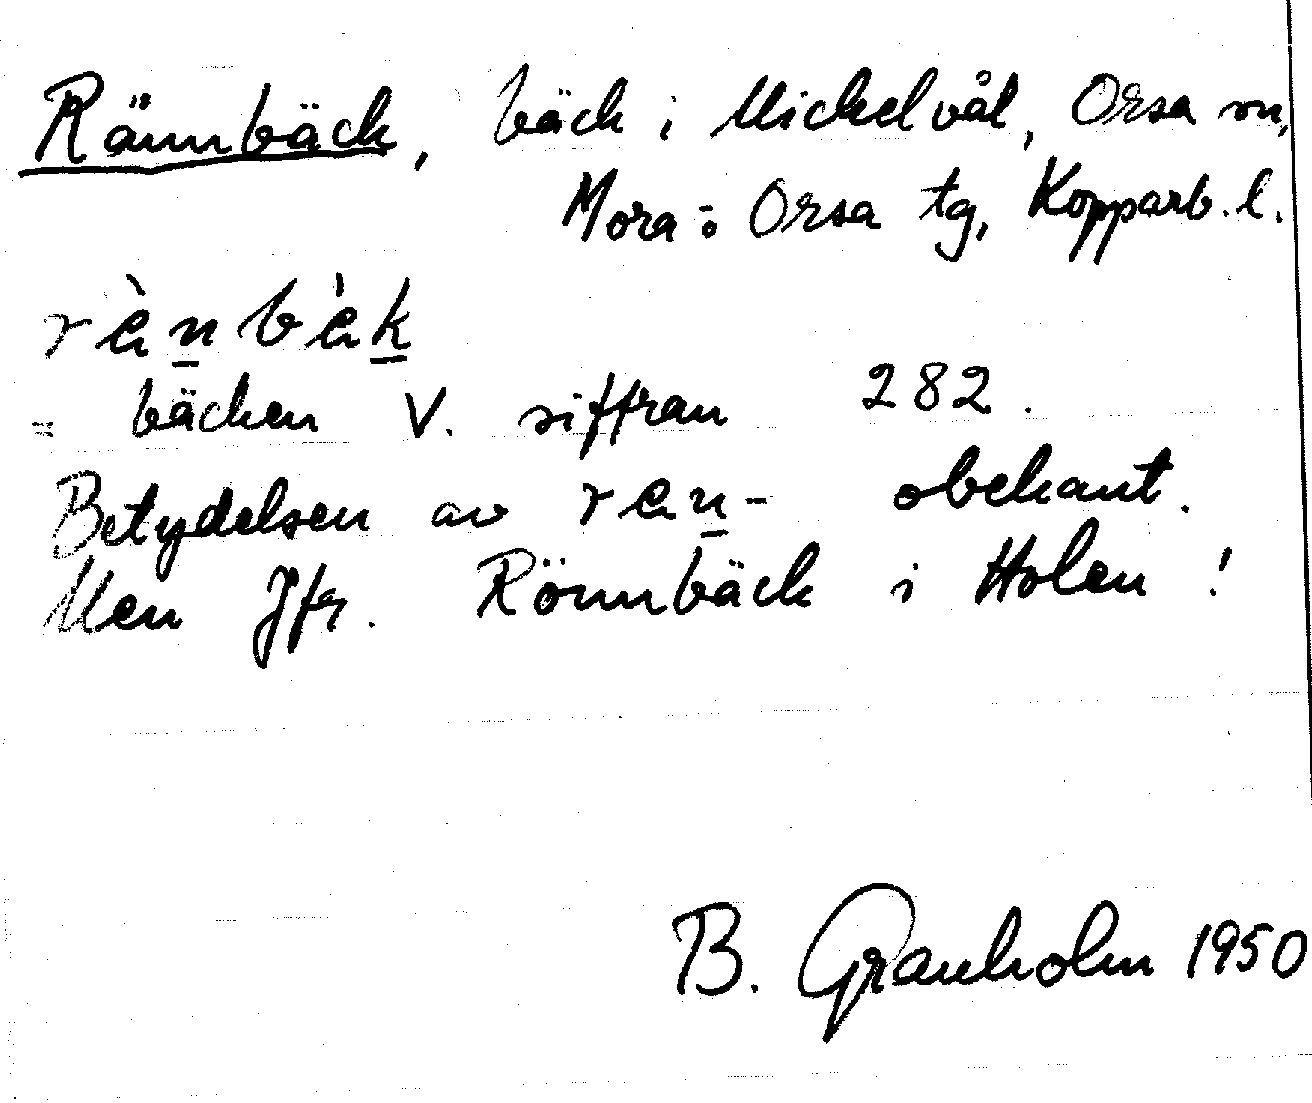 Rännbäck, bäck i Mickelvål, Orsa sn,
Mora o Orsa tg, Kopparb. l.
rä̀nbä̀k
= bäcken V. siffran 282.
Betydelsen av rän- obekant.
Men Jfr. Rönnbäck i Holen!
B. Granholm 1950